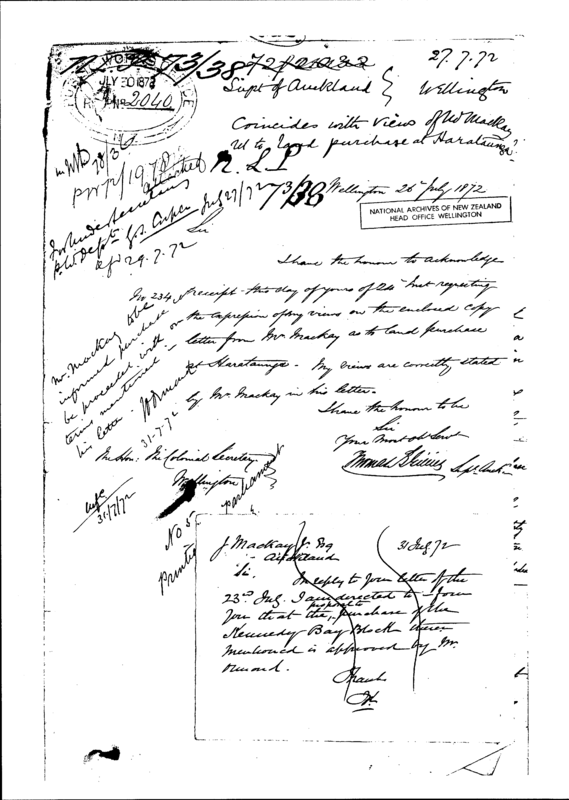 73/38
27.7.72
WORKS
JLY 30 1872
2040
Supt of Auckland
Wellington
Coincides with views of Mr Mackay
as to land purchase at Harataunga
N.L.P
73/38
Wellington 26 July 1872
NATIONAL ARCHIVES OF NEW ZEALAND
HEAD OFFICE WELLINGTON
PWD/1978
attached
for Under Secretary
P.W. Dept
July 27/72
29.7.72
Sir
I have the honour to acknowledge
No 234 receipt this day of yours of 24 Inst requesting
the expression of my views on the enclosed copy
letter from Mr Mackay as to land purchase
at Harataunga. My views are correctly stated
by Mr Mackay in his letter.
I have the honour to be
Sir
Your Most Ob Servt
Supt Auck
The Hon: The Colonial Secretary
Wellington
Mr. Mackay to be
informed purchase
be proceeded with on the
terms mentioned in
his letter
31-7-72
31/7/72
No 5
Printed
Parliament
J Mackay Jr Esq
Auckland
31 July 72
Sir.
In reply to your letter of the
23rd July. I am directed to inform
you that the proposed purchase of the
Kennedy Bay Block therein
mentioned is approved by Mr.
Ormond.